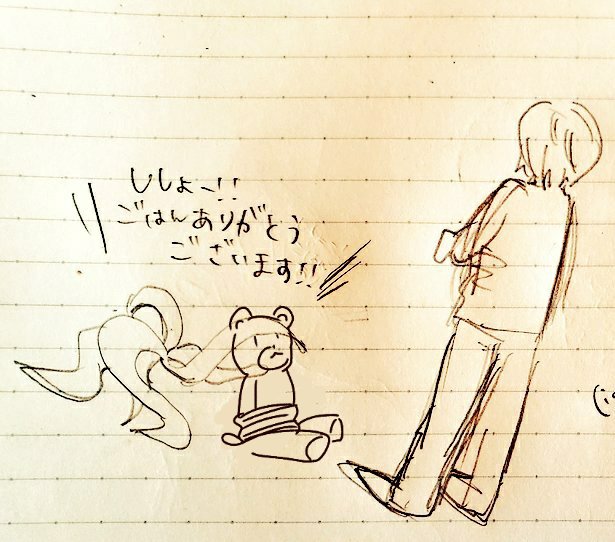 ししょー!!
ごはんありがとう
ございます!!